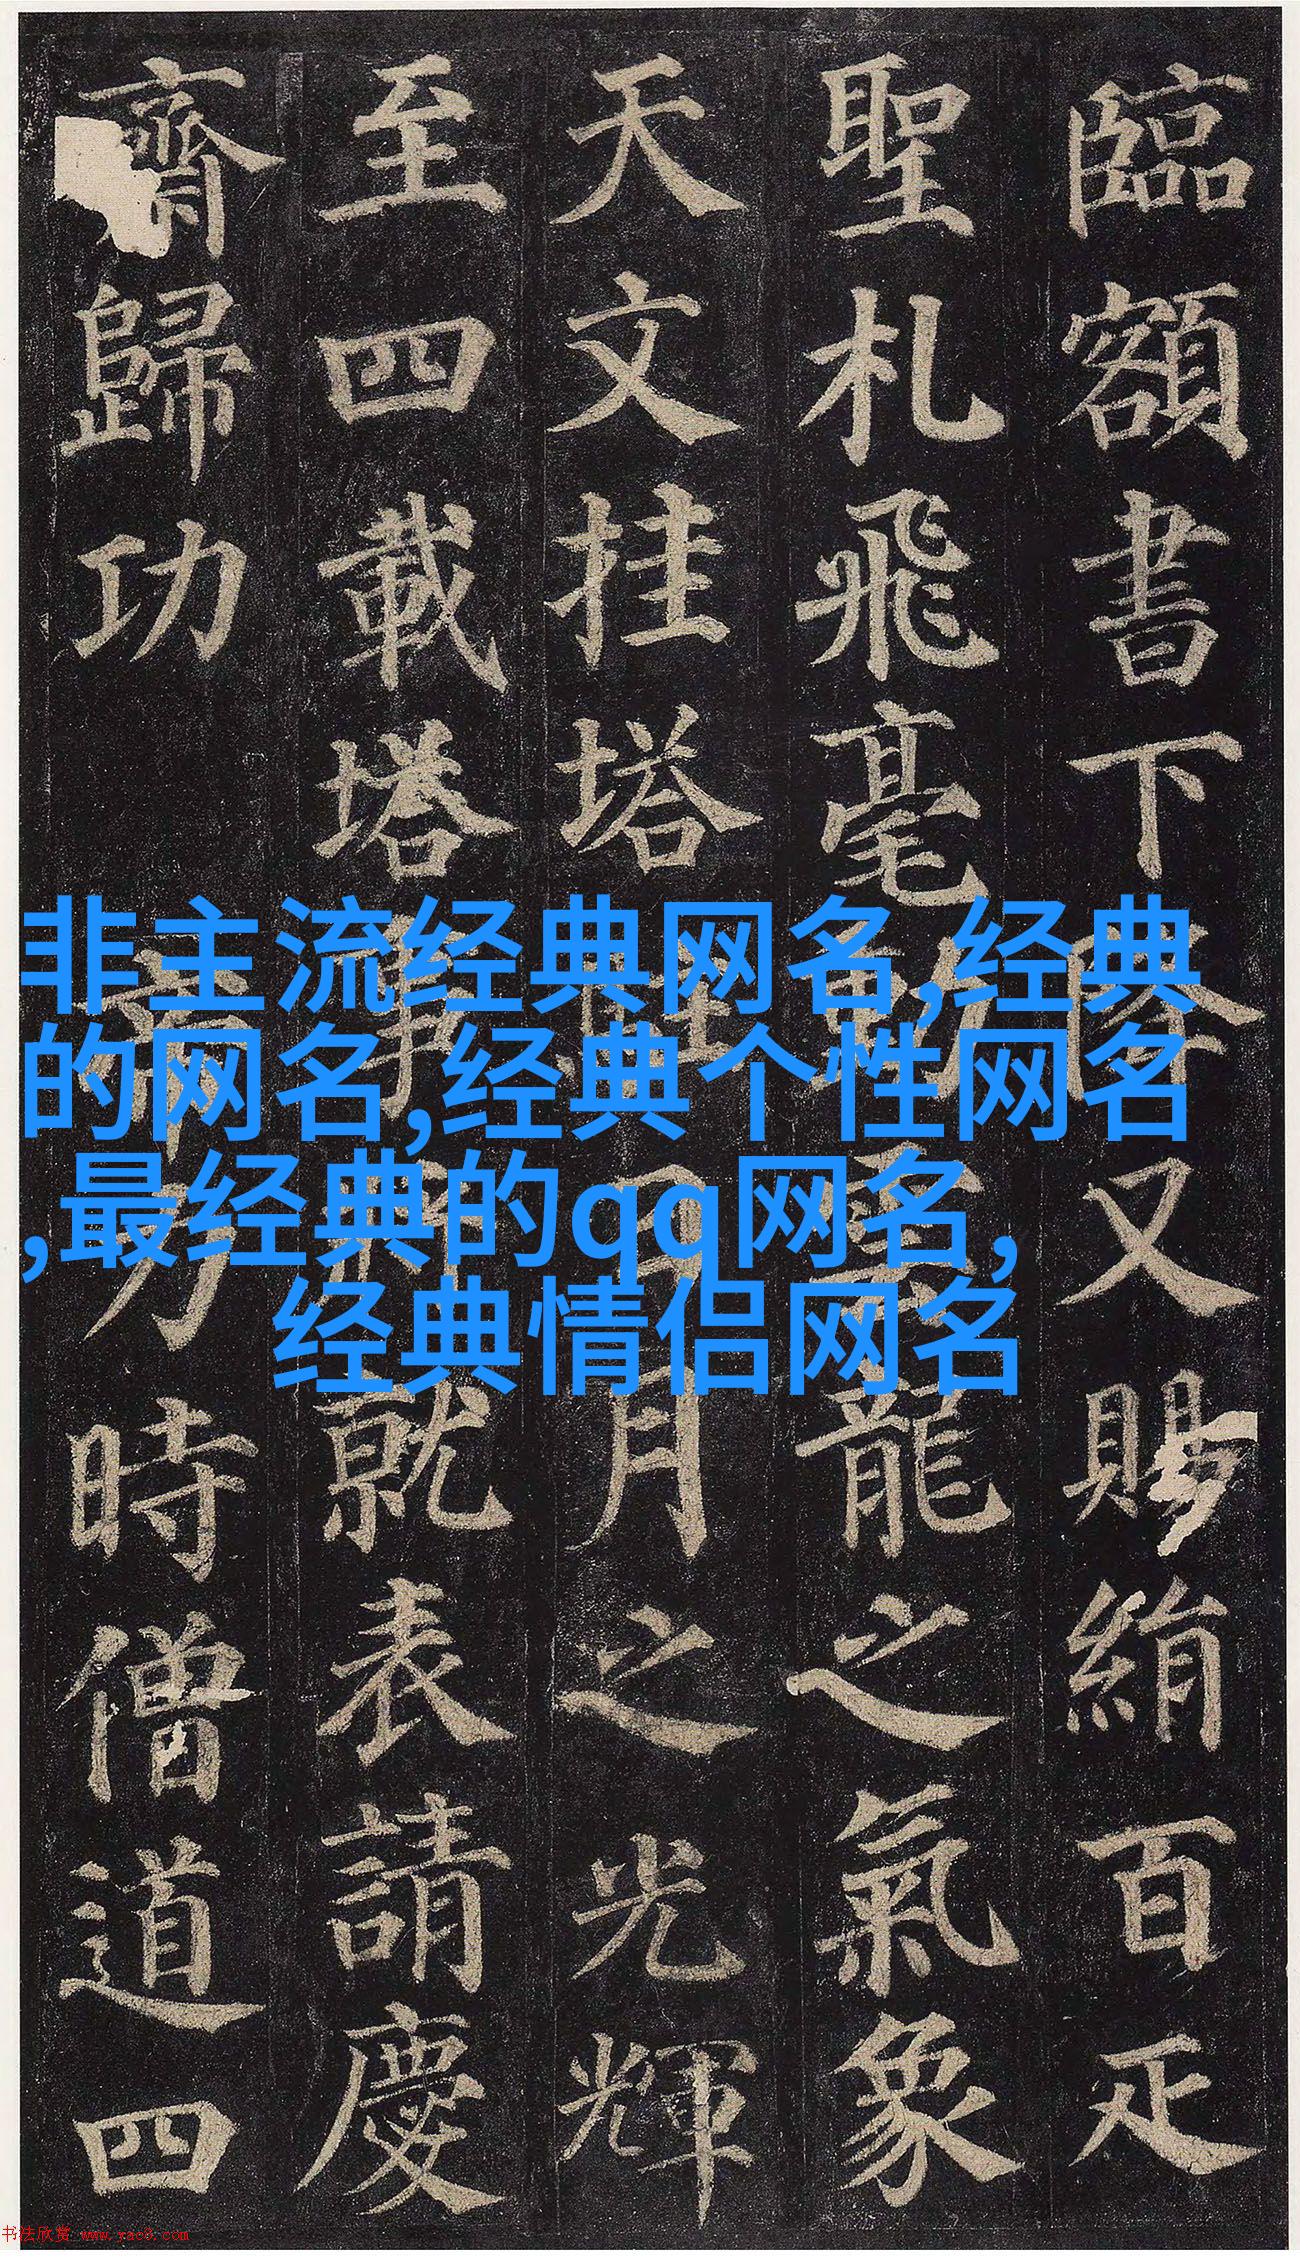 臨額書下降又賜絹百疋
聖札飛毫動雲龍之氣象
天文挂塔駐日月之光輝
至四載塔事將就表請慶
齋歸功帝力時僧道四
非主流经典网名,经典
的网名,经典个性网名
,最经典的qq网名,
经典情侣网名
书法欣赏 www.yac8.com